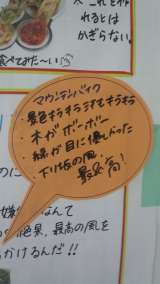 べ これを作
れるとは
かぎらない。
食べてみた〜い
マウンテンバイク
・景色キラキラすぎてキラキラ
・木がボーボー
・緑が目に優しかった
・下り坂の風
最高!
なんて
の絶景、最高の風を
かけるんだ!!